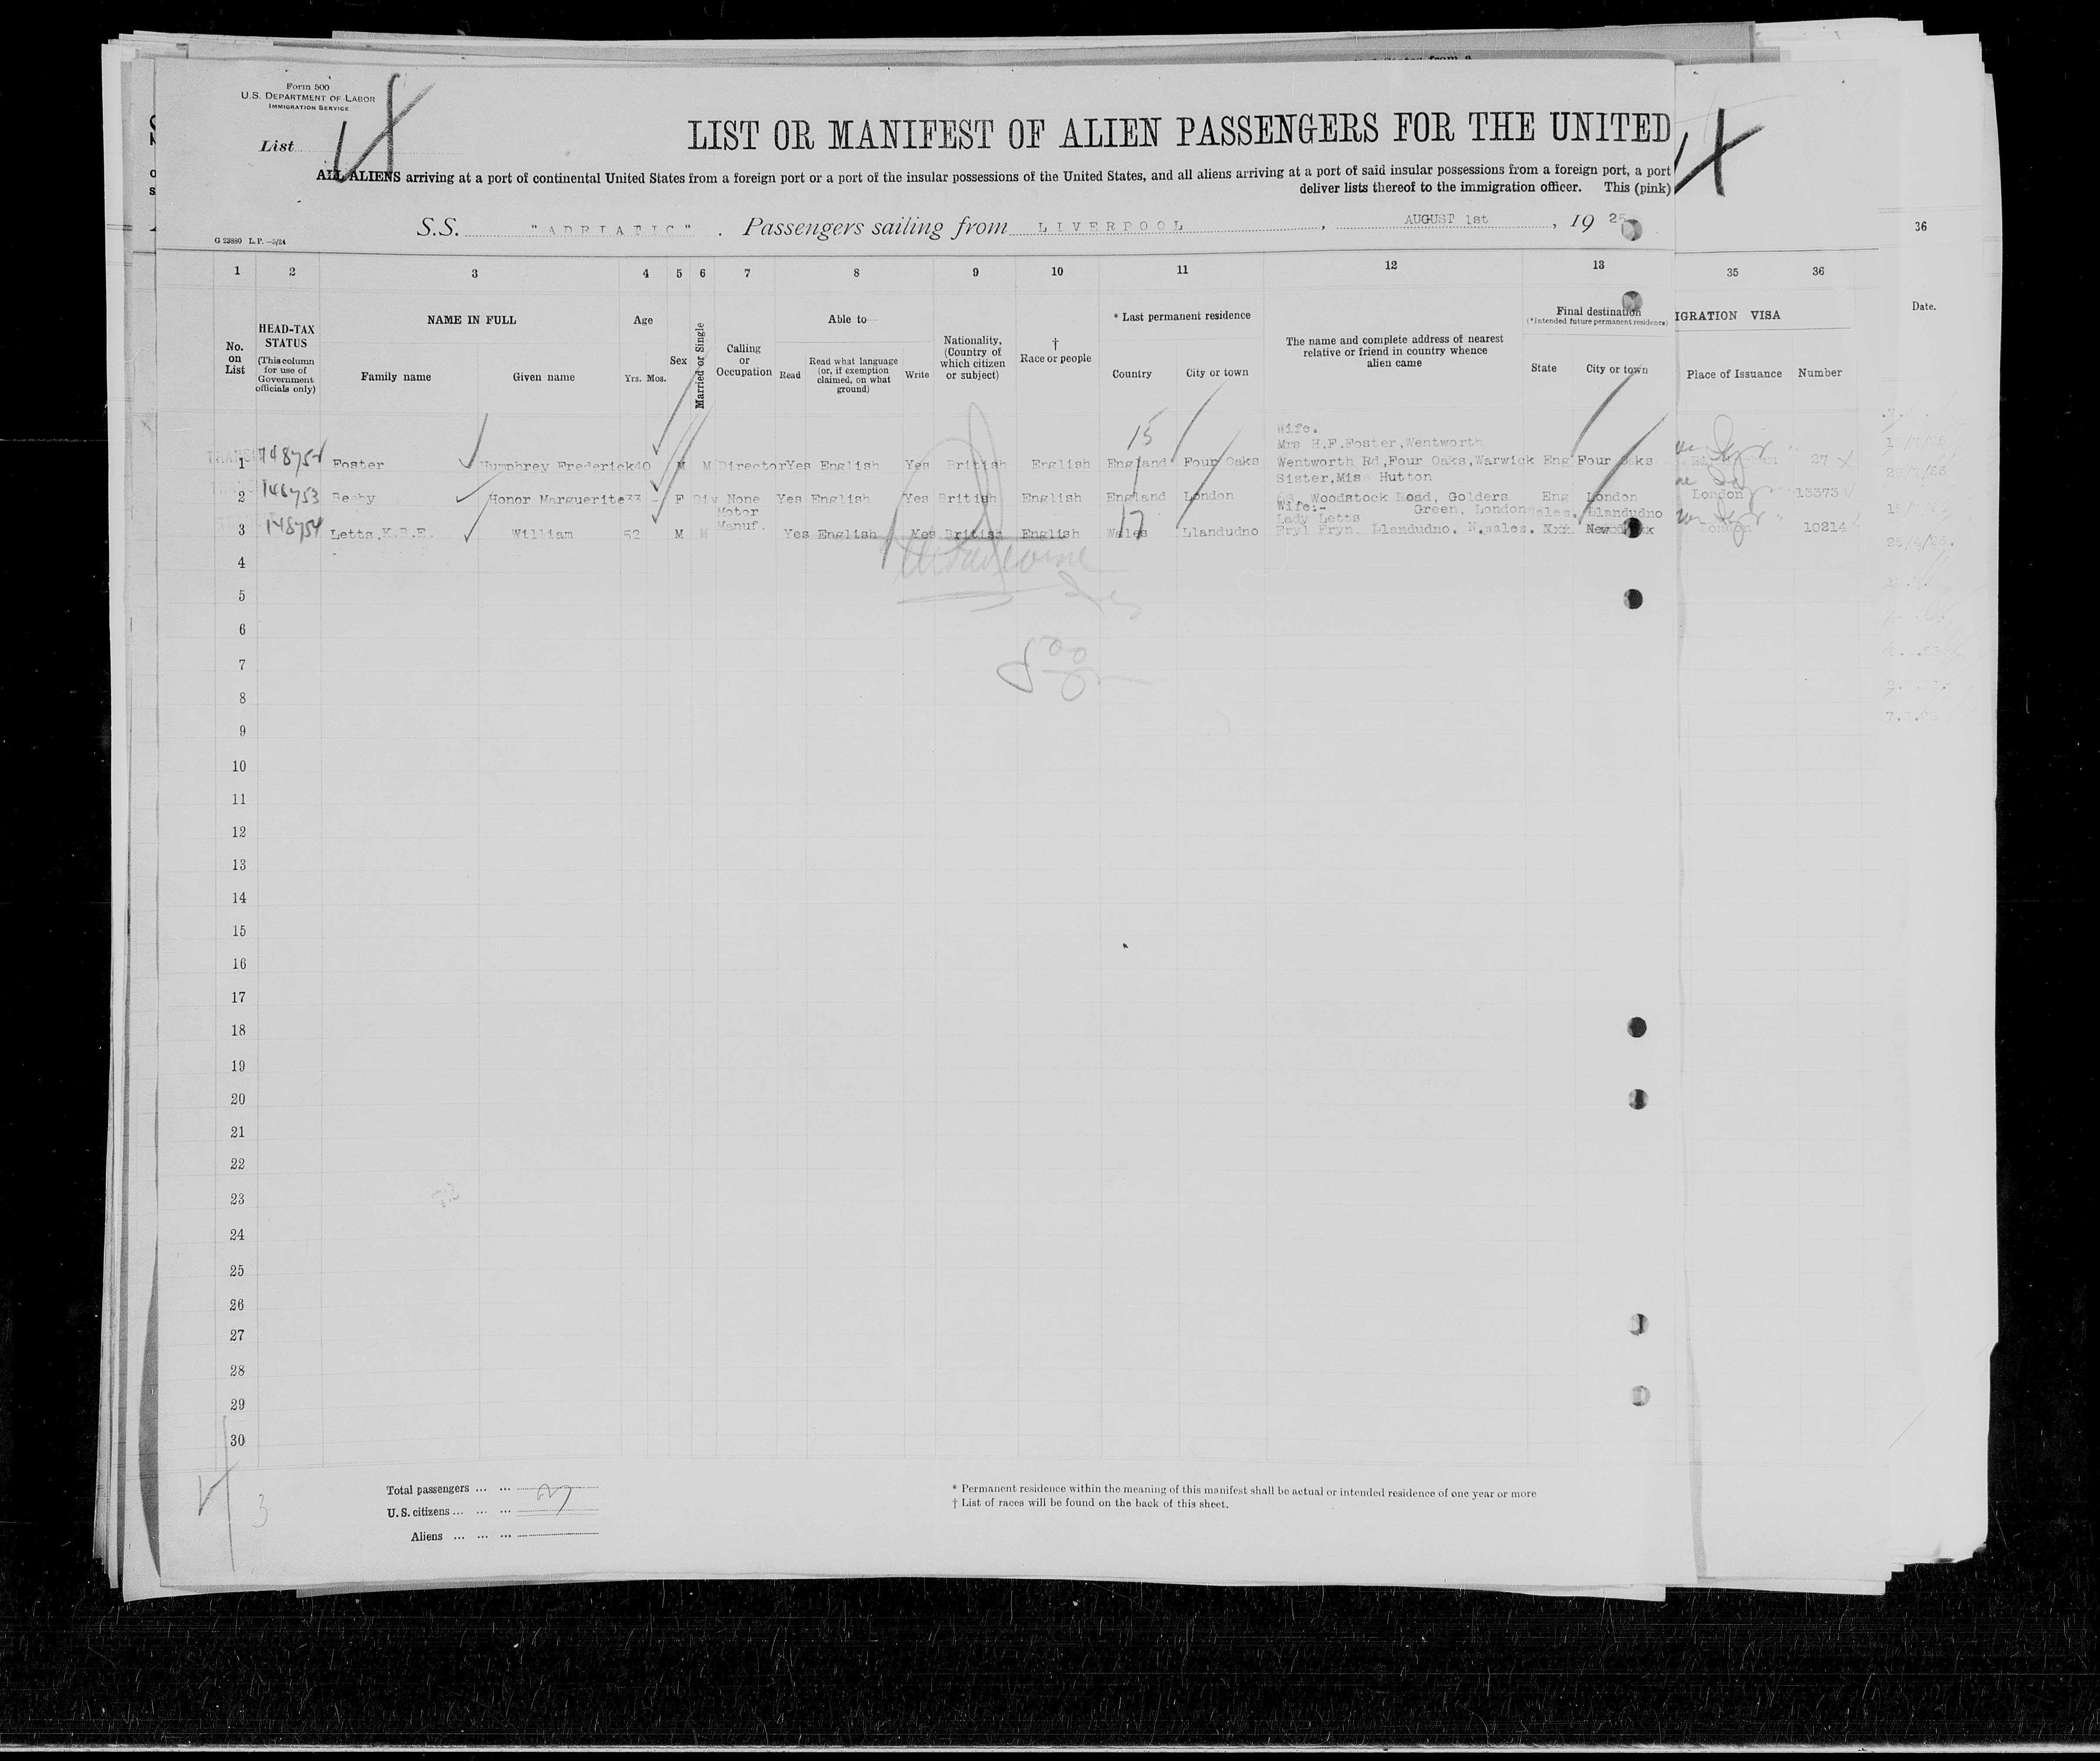 Form 500
U.S. DEPARTMENT OF LABOR
IMMIGRATION SERVICE
List
LIST OR MANIFEST OF ALIEN PASSENGERS FOR THE UNITED
ALL ALIENS arriving at a port of continental United States from a foreign port or a port of the insular possessions of the United States, and all aliens arriving at a port of said insular possessions from a foreign port, a port
deliver lists thereof to the immigration officer. This (pink)
S.S. "ADRIATIC". Passengers sailing from LIVERPOOL, AUGUST 1st, 19 25
G 23880 L.P.—5/24
36
1 2 3 4 5 6 7 8 9 10 11 12 13 35 36
No. on List
HEAD-TAX STATUS
(This column for use of Government officials only)
NAME IN FULL
Family name Given name
Age
Yrs. Mos.
Sex
Married or Single
Calling or Occupation
Able to—
Read
Read what language (or, if exemption claimed, on what ground)
Write
Nationality, (Country of which citizen or subject)
† Race or people
* Last permanent residence
Country City or town
The name and complete address of nearest relative or friend in country whence alien came
Final destination
(*Intended future permanent residence)
State City or town
IGRATION VISA
Place of Issuance Number
Date.
15
Wife.
Mrs H.F.Foster,Wentworth
1 Foster Humphrey Frederick 40 M M Director Yes English Yes British English England Four Oaks Wentworth Rd,Four Oaks,Warwick Eng Four Oaks 27
Sister,Miss Hutton
2 148753 Beeby Honor Marguerite 33 - F Div None Yes English Yes British English England London Woodstock Road, Golders Eng London London 13373
Green, London
Motor
Manuf.
17
Wife:-
Lady Letts
Wales. Llandudno
3 148754 Letts,K.B.E. William 52 M M Yes English Yes British English Wales Llandudno Fryn. Llandudno. N.Wales. London 10214
4
5
6
7
8
9
10
11
12
13
14
15
16
17
18
19
20
21
22
23
24
25
26
27
28
29
30
3
Total passengers
U.S. citizens
Aliens
* Permanent residence within the meaning of this manifest shall be actual or intended residence of one year or more
† List of races will be found on the back of this sheet.